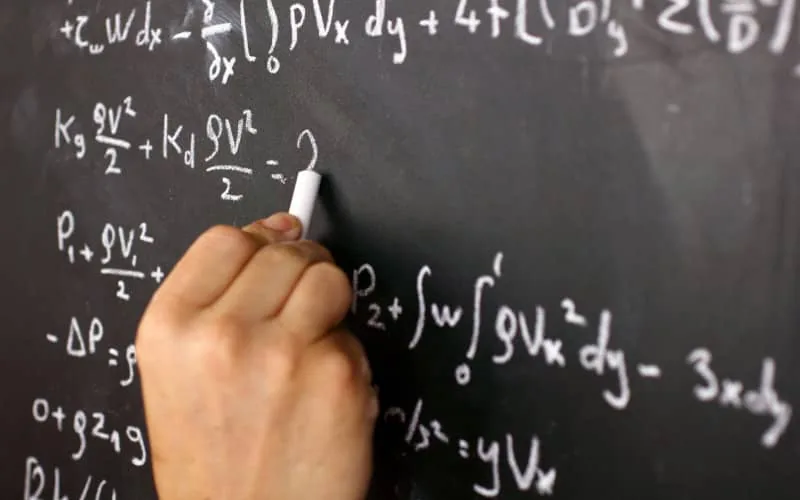 +τ_w W dx - ∂/∂x [∫₀ ρVₓ dy + 4
K_g ρV²/2 + K_d ρV²/2 =
P₁ + ρV₁²/2 + P₂ + ∫w∫₀¹ ρVₓ² dy - 3xdy
-ΔP = ρ
0+ρz₁g /s² = yVₓ